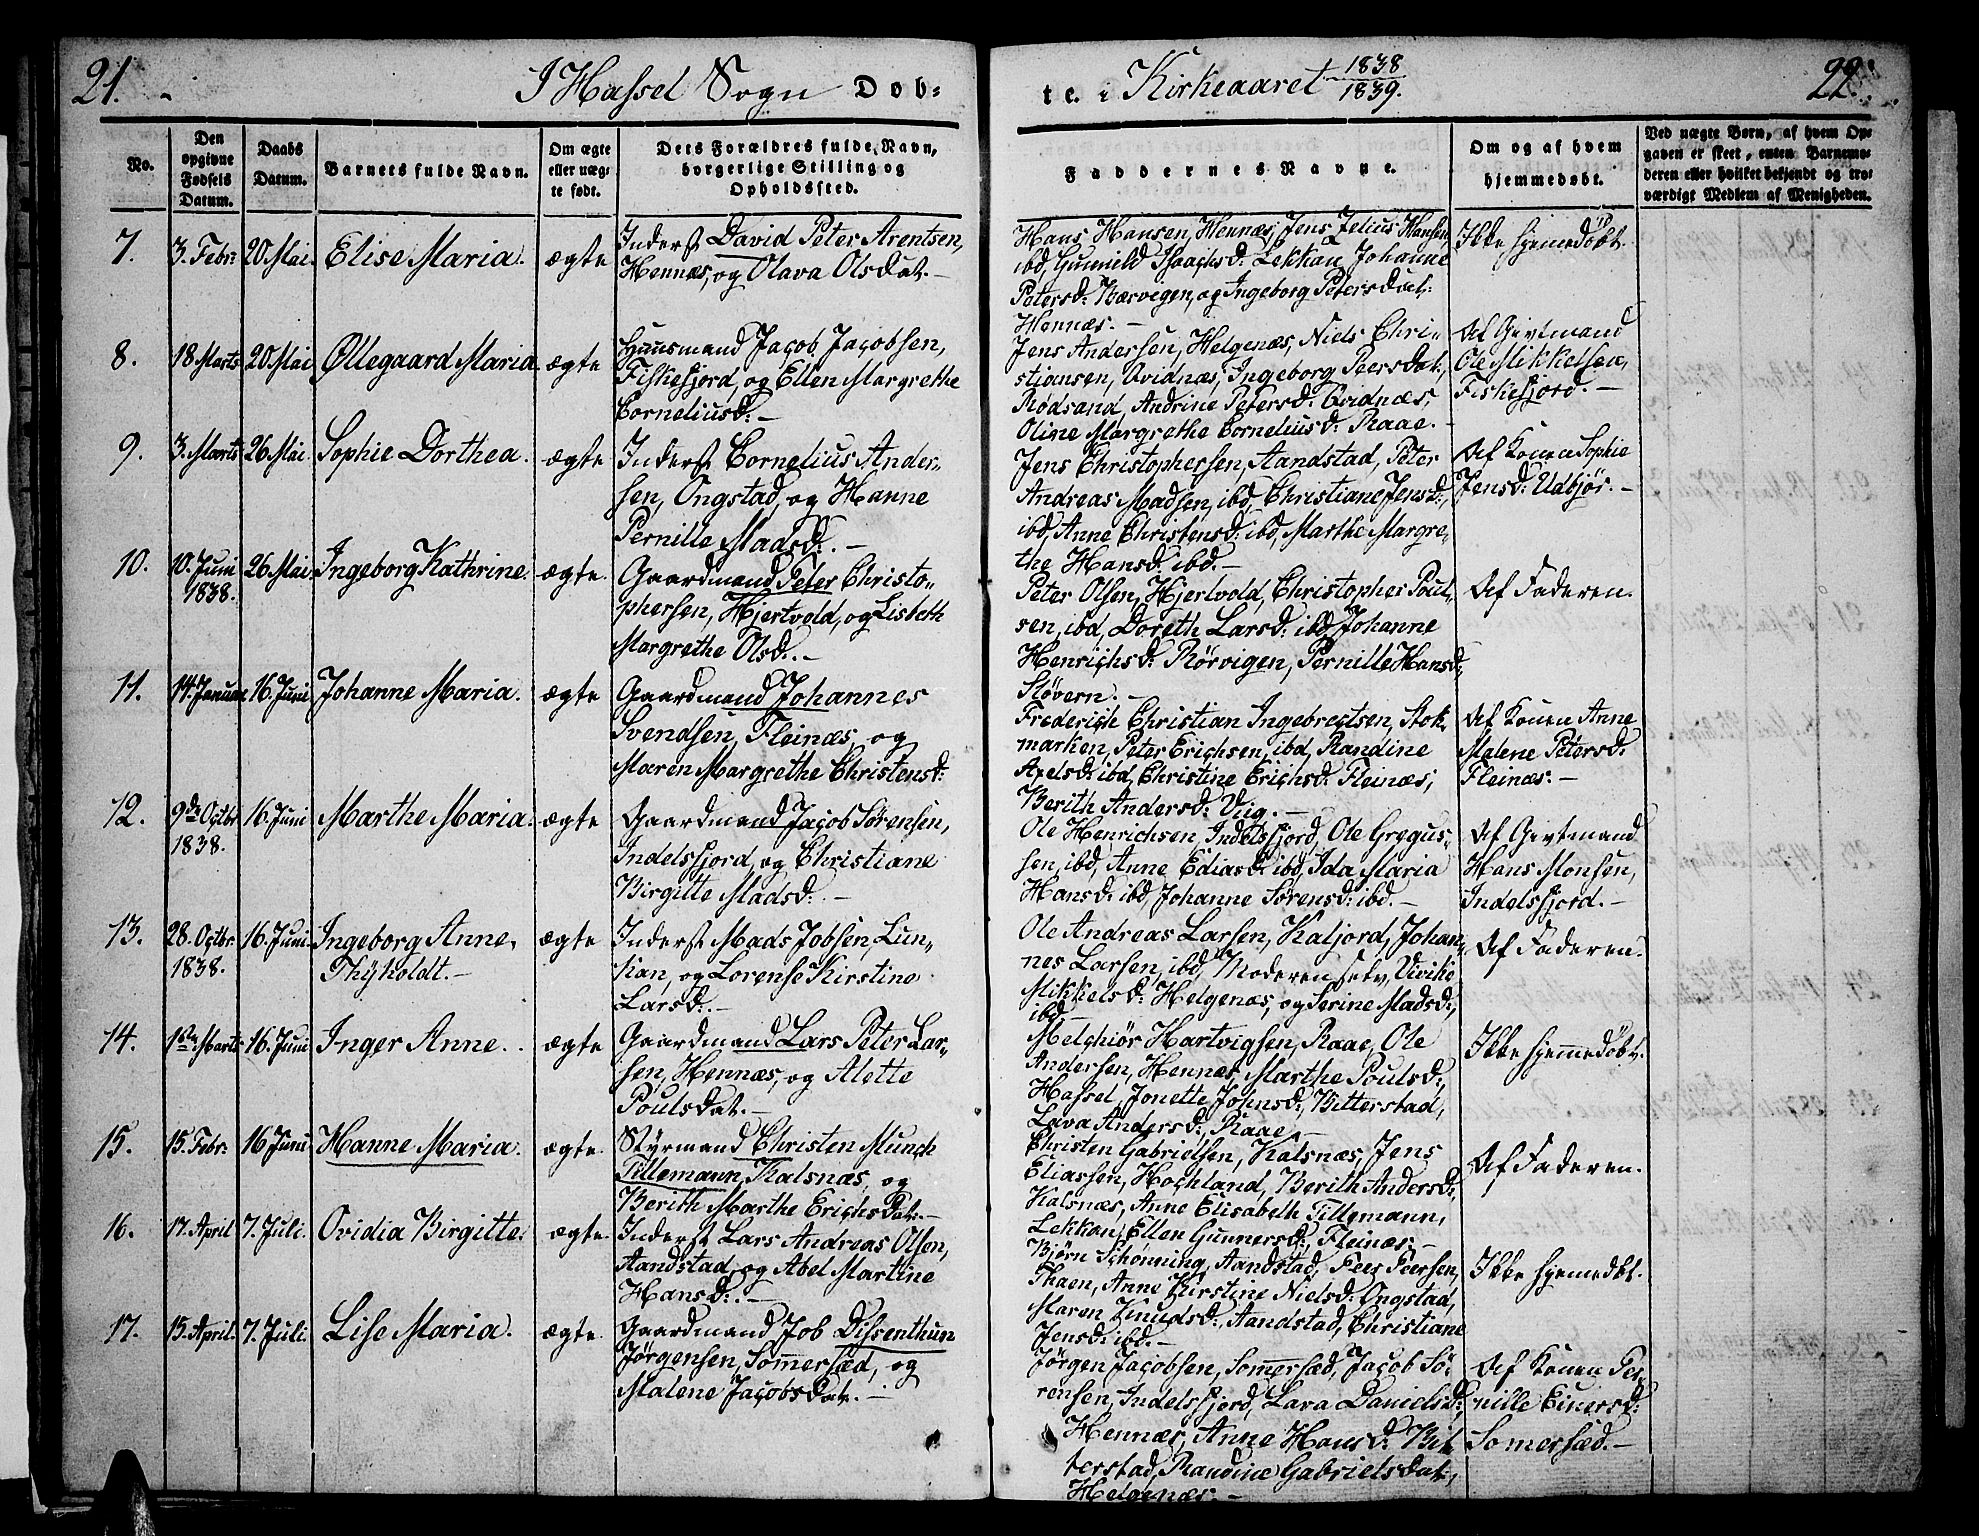 21.
I Hassel Sogn Dob-
te. i Kirkeaaret 1838/1839.
22.
No.
Den opgivne Fødsels Datum.
Daabs Datum.
Barnets fulde Navn.
Om ægte eller uæg- te født.
Dets Forældres fulde Navn, borgerlige Stilling og Opholdssted.
Faddernes Navne.
Om og af hvem hjemmedøbt.
Ved uægte Børn, af hvem Op-
gaven er skeet, enten Barnemo-
deren eller hvilket bekjendt og tro-
værdigt Medlem af Menigheden.
7. 3. Febr: 20. Mai. Elise Maria. ægte
Inderst David Peter Arentsen,
Hennæs, og Olava Olsdat. –
Hans Hansen, Hennæs, Jens Jelius Hansen
ibd, Gunnild Isaachsd: Lekkan, Johanne
Petersd: Kærvigen, og Ingeborg Petersdat:
Hennæs. –
Ikke hjemedøbt.
8. 18 Marts 20 Mai Øllegaard Maria. ægte
Huusmand Jacob Jacobsen,
Fiskefjord, og Ellen Margrethe
Corneliusd: –
Jens Andersen, Helgenæs, Niels Chri-
stiansen, Qvidnæs, Ingeborg Peersdat:,
Rødsand, Andrine Petersd: Qvidnæs,
Oline Margrethe Corneliusd: Raae. –
Af Givtmand
Ole Mikkelsen,
Fiskefjord. –
9. 3. Marts 26 Mai. Sophie Dorthea. ægte
Inderst Cornelius Ander-
sen, Ongstad, og Hanne
Pernille Madsd:. –
Jens Christophersen, Aandstad, Peter
Andreas Madsen, ibd, Christiane Jensd:,
ibd, Anne Christensd: ibd, Marthe Margre-
the Hansd: ibd. –
Af Konen Sophie
Jensd: Udbjør. –
10. 10. Juni 1838. 26 Mai Ingeborg Kathrine. ægte.
Gaardmand Peter Christo-
phersen, Hjertvold, og Lisbeth
Margrethe Olsd:. –
Peter Olsen, Hjertvold, Christopher Poul-
sen, ibd, Doreth Larsd: ibd, Johanne
Henrichsd: Rørvigen, Pernille Hansd:
Støvern. –
Af Faderen.
11. 14. Januar 16. Juni Johanne Maria. ægte
Gaardmand Johannes
Svendsen, Fleinæs, og
Maren Margrethe Christensd:
Frederich Christian Ingebrectsen, Stok-
marken, Peter Erichsen, ibd, Randine
Axelsd: ibd, Christine Erichsd: Fleinæs,
Berith Andersd: Viig. –
Af Konen Anne
Malene Petersd:
Fleinæs. –
12. 9de Octbr 1838. 16. Juni Marthe Maria. ægte
Gaardmand Jacob Sørensen,
Indelsfjord, og Christiane
Birgitte Madsd:. –
Ole Henrichsen, Indelsfjord, Ole Gregus-
sen, ibd, Anne Ediasd: ibd, Ida Maria
Hansd: ibd, Johanne Sørensd: ibd. –
Af Givtmand
Hans Monsen,
Indelsfjord. –
13. 28. Octbr. 1838. 16. Juni. Ingeborg Anne, ægte
Thÿholdt. –
Inderst Mads Jobsen, Lun-
kan, og Lorense Kirstine
Larsd:. –
Ole Andreas Larsen, Kaljord, Johan-
nes Larsen, ibd, Moderen selv, Vivike
Mikkelsd: Helgenæs, og Serine Madsd:,
ibd. –
Af Faderen.
14. 16de Marts 16. Juni Inger Anne. ægte
Gaardmand Lars Peter Lar-
sen, Hennæs, og Alette
Poulsdat. –
Melchiør Hartvigsen, Raae, Ole
Andersen, Hennæs, Marthe Poulsd:,
Hassel, Jonette Johnsd:, Bitterstad,
Lava Andersd:, Raae. –
Ikke hjemmedøbt.
15. 15. Febr: 16 Juni Hanne Maria. ægte.
Styrmand Christen Munch
Tillemann, Kalsnæs, og
Berith Marthe Erichsdat:. –
Christen Gabrielsen, Kalsnæs, Jens
Eliassen, Hochland, Berith Andersd:,
Kalsnæs, Anne Elisabeth Tillemann,
Lekkan, Ellen Gunnersd:, Fleinæs. –
Af Faderen.
16. 17. April 7. Juli. Ovidia Birgitte. ægte.
Inderst Lars Andreas Olsen,
Aandstad, og Abel Martine
Hansd:. –
Bjørn Schønning, Aandstad, Peer Peersen,
Thaen, Anne Kirstine Nielsd: Ongstad,
Maren Knudsd:, Aandstad, Christiane
Jensd: ibd. –
Ikke hjemedøbt.
17. 15. April. 7. Juli. Lise Maria. ægte.
Gaardmand Job Dissenthun
Jørgensen, Somersæd, og
Malene Jacobsdat. –
Jørgen Jacobsen, Somersæd, Jacob Sø-
rensen, Indelsfjord, Lava Danielsd:,
Hennæs, Anne Hansd: Bit-
terstad, Randine Gabrielsdat:,
Helgenæs. –
Af Konen Per-
nille Einersd:
Somersæd. –